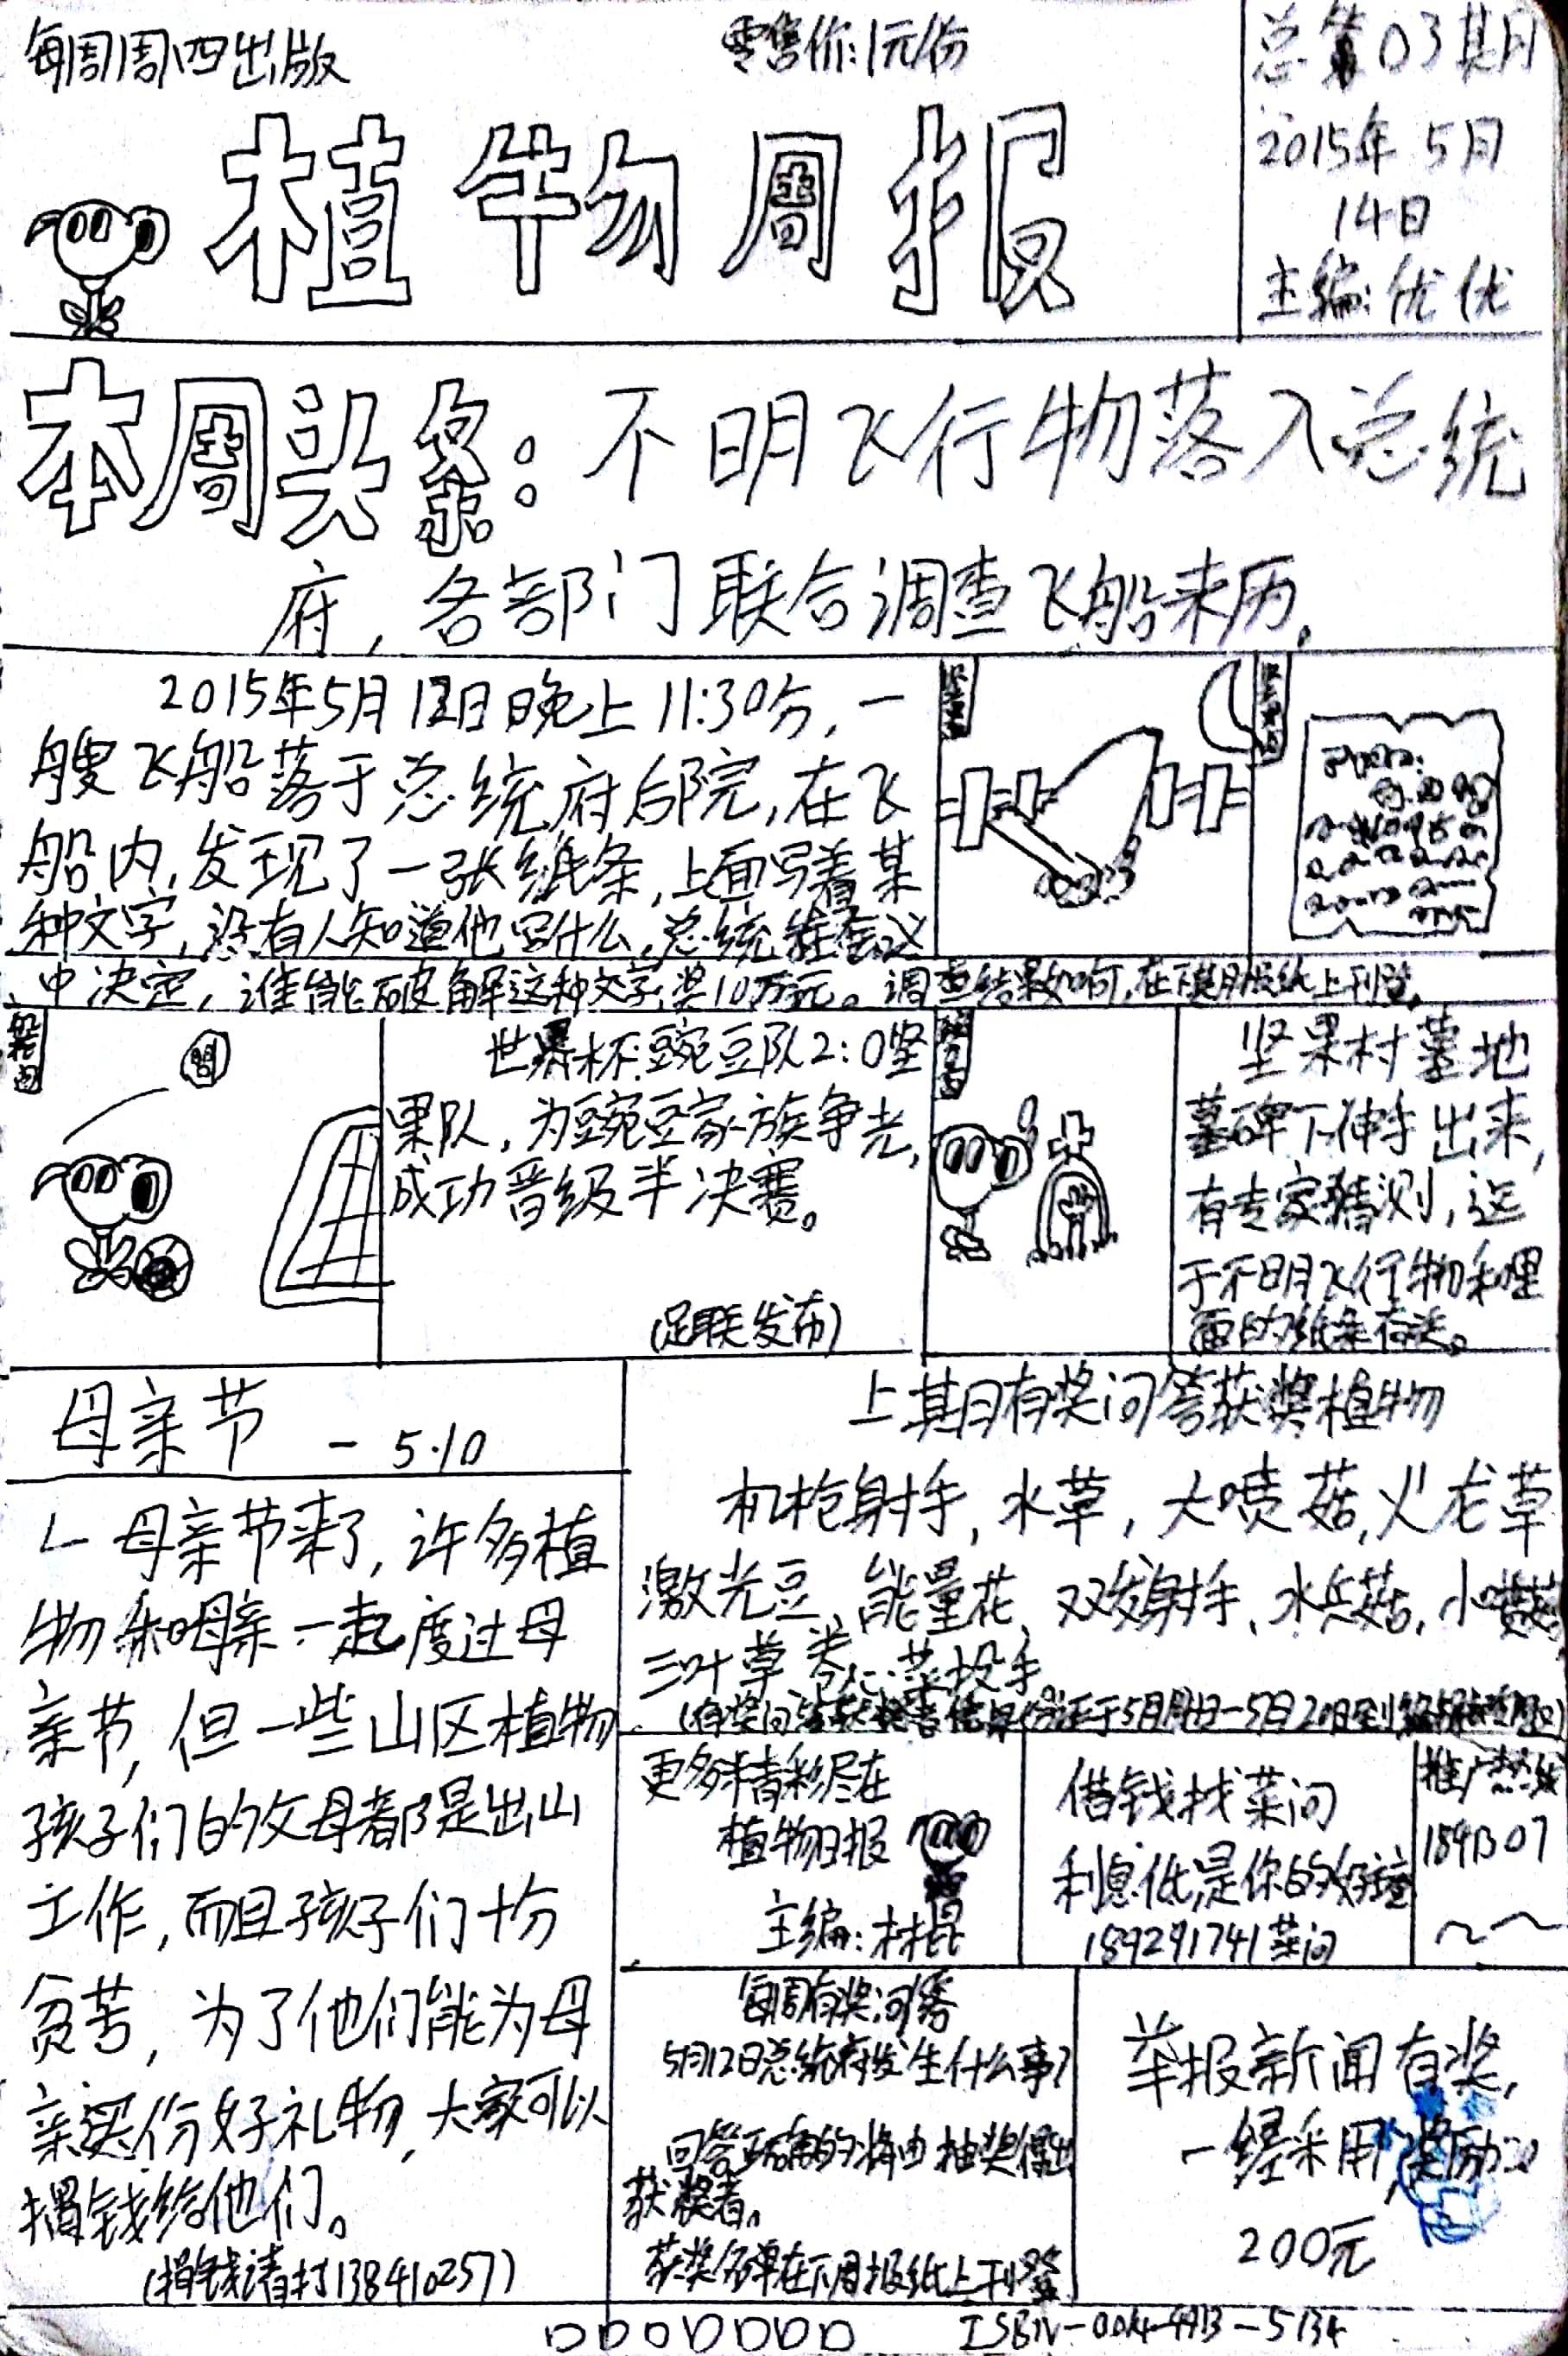 每周周四出版
零售价:1元/份
总第03期
2015年5月
14日
主编:优优
植物周报
本周头条:不明飞行物落入总统
府,各部门联合调查飞船来历。
2015年5月12日晚上11:30分,一
艘飞船落于总统府后院,在飞
船内,发现了一张纸条,上面写着某
种文字,没有人知道他写什么,总统在会议
中决定,谁能破解这种文字,奖10万元。调查结果如何,在下期报纸上刊登。
世界杯:豌豆队2:0坚
果队,为豌豆家族争光,
成功晋级半决赛。
(足联发布)
坚果村墓地
墓碑下伸手出来,
有专家猜测,这
于不明飞行物和里
面的纸条有关。
母亲节 - 5.10
母亲节来了,许多植
物和母亲一起度过母
亲节,但一些山区植物
孩子们的父母都是出山
工作,而且孩子们十分
贫苦,为了他们能为母
亲买份好礼物,大家可以
捐钱给他们。
(捐钱请打138410257)
上期有奖问答获奖植物
机枪射手,水草,大喷菇,火龙草
激光豆、能量花、双发射手、水兵菇,小喷菇
三叶草、卷心菜投手。
更多精彩尽在
植物日报
主编:林昆
借钱找菜问
利息低,是你的好
189291741菜问
推广热线
1891307
每周有奖问答
5月12日总统府发生什么事?
回答正确的将由抽奖得出
获奖者。
获奖名单在下周报纸上刊登
举报新闻有奖,
一经采用,奖励
200元
ISBN-0014-4913-5134